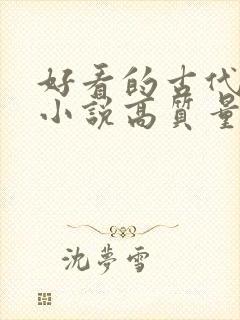 好看的古代
小説高質量
沈夢雪